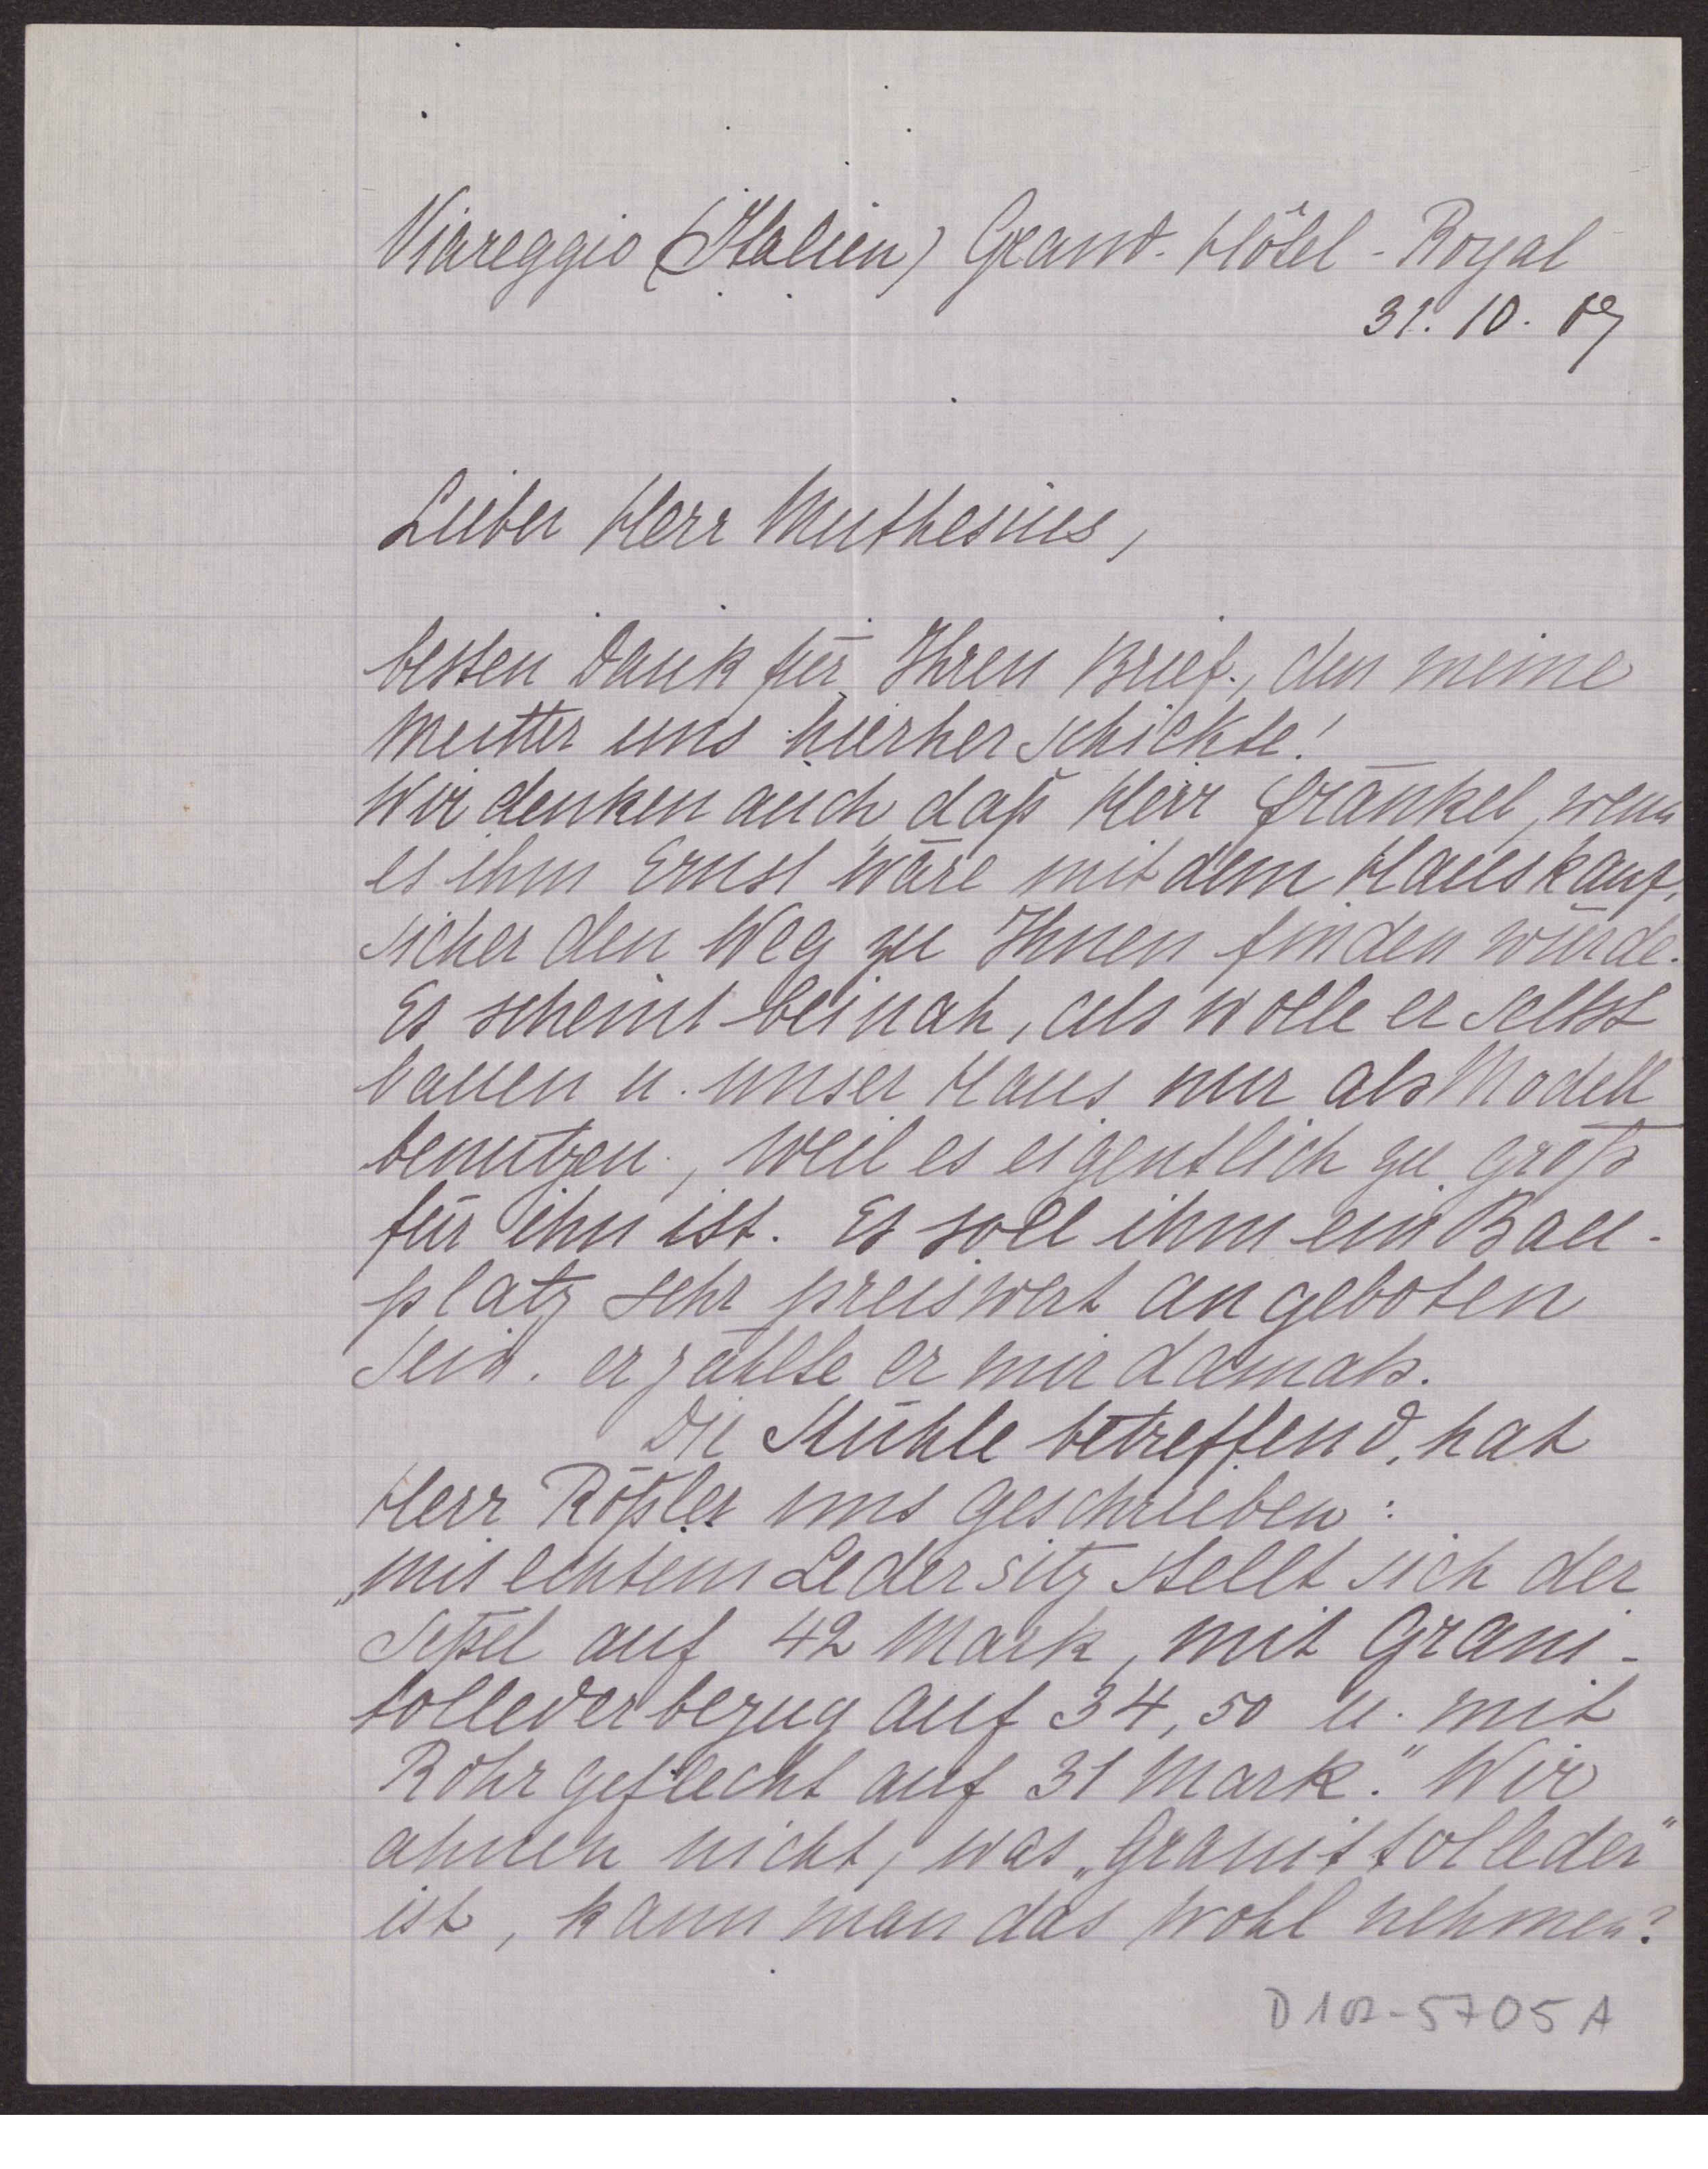 Viareggio (Italien) Grand-Hôtel-Royal
31. 10. 09
Lieber Herr Muthesius,
besten Dank für Ihren Brief, den meine
Mutter uns hierher schickte!
Wir denken auch, daß Herr Fränkel, wenn
es ihm Ernst wäre mit dem Hauskauf,
sicher den Weg zu Ihnen finden würde.
Es scheint beinah, als wolle er selbst
bauen u. unser Haus nur als Modell
benutzen, weil es eigentlich zu groß
für ihn ist. Es soll ihm ein Bau-
platz sehr preiswert angeboten
sein. erzählte er mir damals.
Die Stühle betreffend, hat
Herr Rößler uns geschrieben:
„mit echtem Ledersitz stellt sich der
Seßel auf 42 Mark, mit Grani-
tollederbezug auf 34,50 u. mit
Rohrgeflecht auf 31 Mark." Wir
ahnen nicht, was „Granittolleder"
ist, kann man das wohl nehmen?
D102-5705A